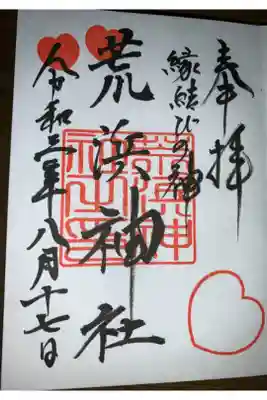 奉拝
縁結びの神
荒浜神社
令和二年八月十七日